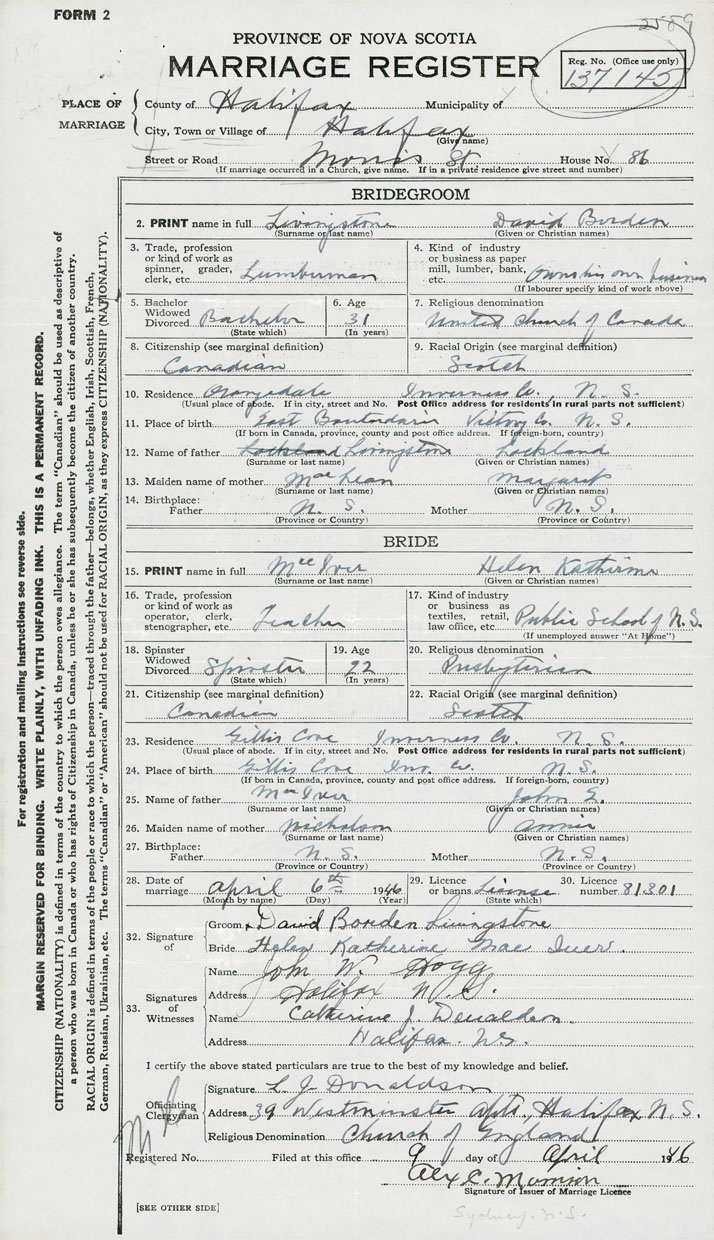 FORM 2
2589
PROVINCE OF NOVA SCOTIA
MARRIAGE REGISTER
Reg. No. (Office use only)
137145
PLACE OF MARRIAGE
County of Halifax Municipality of
City, Town or Village of Halifax
(Give name)
Street or Road Morris St House No. 86
(If marriage occurred in a Church, give name. If in a private residence give street and number)
BRIDEGROOM
2. PRINT name in full Livingstone David Borden
(Surname or last name) (Given or Christian names)
3. Trade, profession or kind of work as spinner, grader, clerk, etc. Lumberman
4. Kind of industry or business as paper mill, lumber, bank, etc. Owns his own business
(If labourer specify kind of work above)
5. Bachelor Widowed Divorced Bachelor
(State which)
6. Age 31
(In years)
7. Religious denomination
United Church of Canada
8. Citizenship (see marginal definition)
Canadian
9. Racial Origin (see marginal definition)
Scotch
10. Residence Orangedale Inverness Co., N. S.
(Usual place of abode. If in city, street and No. Post Office address for residents in rural parts not sufficient)
11. Place of birth East Boulardarie Victory Co. N. S.
(If born in Canada, province, county and post office address. If foreign-born, country)
12. Name of father Lockland Livingstone Lockland
(Surname or last name) (Given or Christian names)
13. Maiden name of mother MacLean Margaret
(Surname or last name) (Given or Christian names)
14. Birthplace:
Father N. S. Mother N. S.
(Province or Country) (Province or Country)
BRIDE
15. PRINT name in full MacIver Helen Katherine
(Surname or last name) (Given or Christian names)
16. Trade, profession or kind of work as operator, clerk, stenographer, etc. Teacher
17. Kind of industry or business as textiles, retail, law office, etc. Public School of N.S.
(If unemployed answer "At Home")
18. Spinster Widowed Divorced Spinster
(State which)
19. Age 22
(In years)
20. Religious denomination
Presbyterian
21. Citizenship (see marginal definition)
Canadian
22. Racial Origin (see marginal definition)
Scotch
23. Residence Gillis Cove Inverness Co. N. S.
(Usual place of abode. If in city, street and No. Post Office address for residents in rural parts not sufficient)
24. Place of birth Gillis Cove Inv. Co. N. S.
(If born in Canada, province, county and post office address. If foreign-born, country)
25. Name of father MacIver John
(Surname or last name) (Given or Christian names)
26. Maiden name of mother Nicholson Annie
(Surname or last name) (Given or Christian names)
27. Birthplace:
Father N. S. Mother N. S.
(Province or Country) (Province or Country)
28. Date of marriage April 6th 1946
(Month by name) (Day) (Year)
29. Licence or banns License
(State which)
30. Licence number 81301
32. Signature of
Groom x David Borden Livingstone
Bride Helen Katherine MacIver.
33. Signatures of Witnesses
Name John W. Hogg
Address Halifax N.S.
Name Catherine J. Donaldson.
Address Halifax. N.S.
I certify the above stated particulars are true to the best of my knowledge and belief.
Officiating Clergyman
Signature L. J Donaldson
Address 39 Westminster Apts., Halifax N. S.
Religious Denomination Church of England
Registered No. Filed at this office 9 day of April 1946
Alex C. Morrison
Signature of Issuer of Marriage Licence
Sydney. N. S.
[SEE OTHER SIDE]
For registration and mailing instructions see reverse side.
MARGIN RESERVED FOR BINDING. WRITE PLAINLY, WITH UNFADING INK. THIS IS A PERMANENT RECORD.
CITIZENSHIP (NATIONALITY) is defined in terms of the country to which the person owes allegiance. The term "Canadian" should be used as descriptive of
a person who was born in Canada or who has rights of Citizenship in Canada, unless he or she has subsequently become the citizen of another country.
RACIAL ORIGIN is defined in terms of the people or race to which the person—traced through the father—belongs, whether English, Irish, Scottish, French,
German, Russian, Ukrainian, etc. The terms "Canadian" or "American" should not be used for RACIAL ORIGIN, as they express CITIZENSHIP (NATIONALITY).